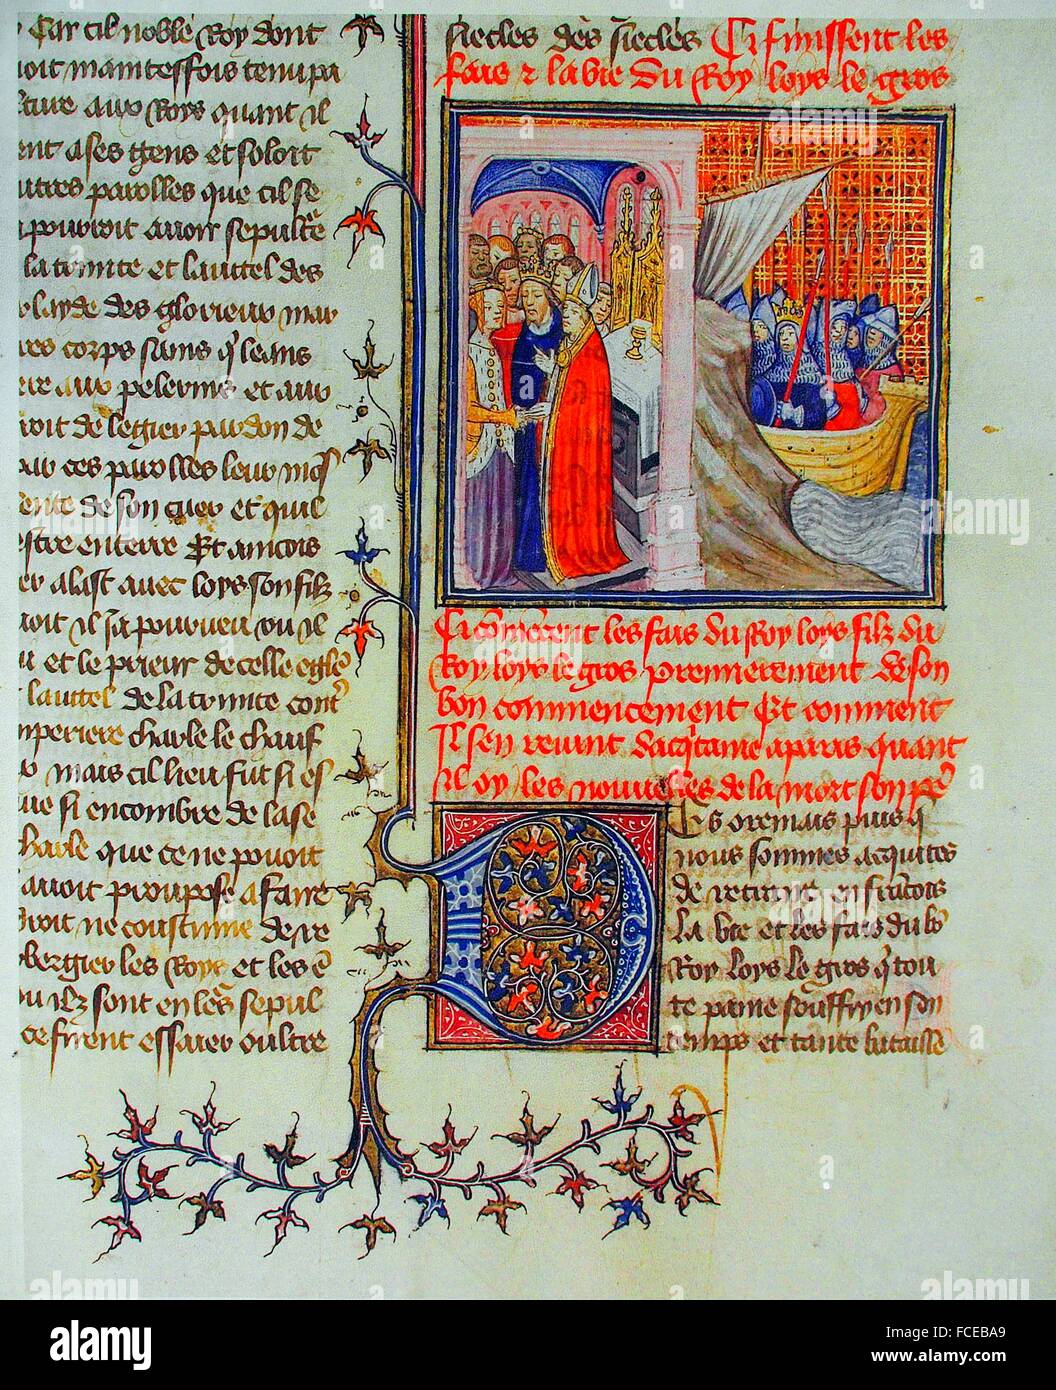 Car cil noble Roy dont
maintesfois tenu pa
aux Roys quant il
ent a ses gens et soloit
utres parolles que cil se
pourroit avoir sepultẽ
la trinite et lautel des
des glorieux mar
corps sains q̃ leans
aux pelerins et aux
de legier pardon de
ces parolles leur
ente de son cuer et quil
estre enterre Et aincois
er alast avec loys son filz
il ja pourveu ou il
et le prieur de celle eglẽ
lautel de la trinite contˀ
mperiere charle le chauf
mais cil lieu fut si es
ue si encombre de la se
charle que ce ne pouoit
avoit pͥupose a faire
droit ne coustume de re
bergier les Roys et les ẽ
ou ilz sont en leˀs sepul
ce firent essaier oultre
siecles des siecles Ci finissent les
fais ⁊ la vie Du Roy loys le gros
Ci cõmẽcent les fais du Roy loys filz du
Roy loys le gros premierement de son
bon commencement Et comment
Il sen revint dacq̃taine a paris quant
il oy les nouvelles de la mort son pẽ
Es oremais puis q̃
nous sommes acquites
de retraire en francois
la vie et les fais du bõ
Roy loys le gros q̃ tou
te paine souffry en sõ
temps et tante bataille
alamy
alamy
Image ID: FCEBA9
www.alamy.com